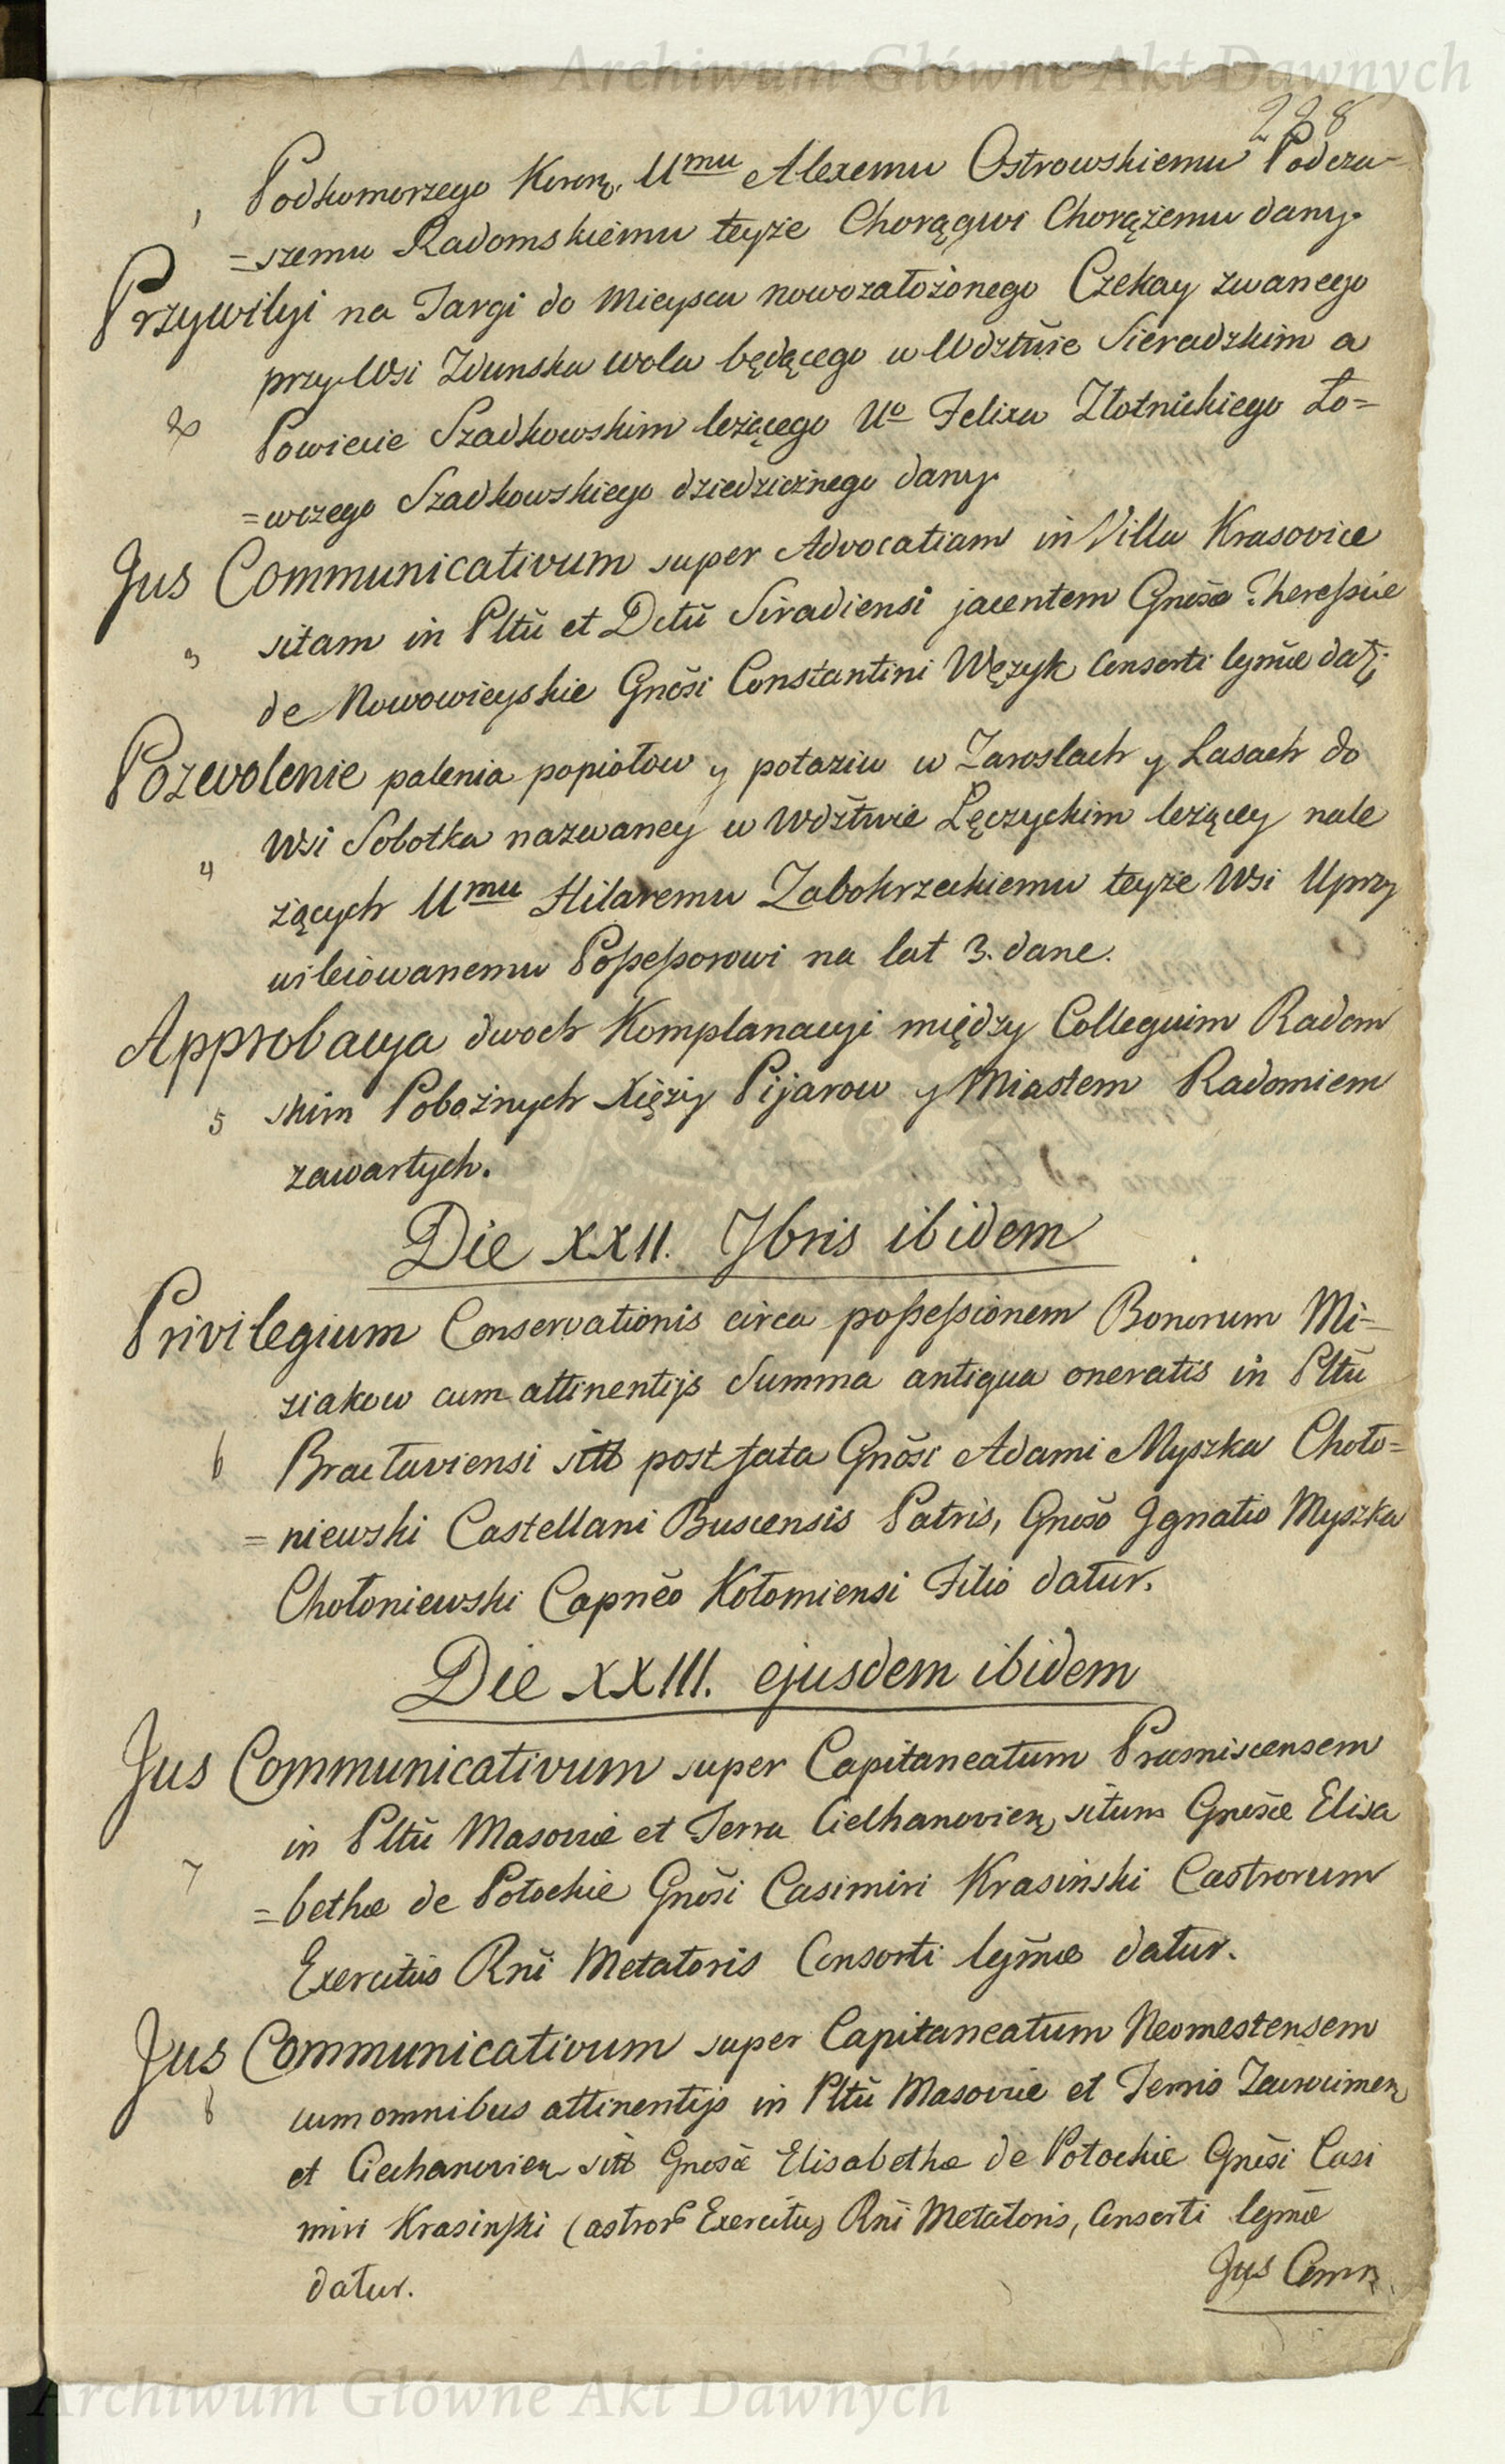 Archiwum Główne Akt Dawnych
228
Podkomorzego Koroņ. Umu Alexemu Ostrowskiemu Podcza-
1
=szemu Radomskiemu teyże Chorągwi Chorążemu dany.
Przywilyi na Targi do Mieysca nowozałożonego Czekay zwanego
przy Wsi Zdunska wola będącego w Wdztwie Sieradzkim a
2
Powiecie Szadkowskim leżącego Uo Felixa Złotnickiego Ło=
=wczego Szadkowskiego dziedzicznego dany.
Jus Communicativum super Advocatiam in Villa Krasovice
3
sitam in Pltũ et Dctũ Siradiensi jacentem Gnosæ Theressiæ
de Nowowieyskie Gnõsi Constantini Wężyk Consorti lgmæ dat;
Pozwolenie palenia popiołow y potaziu w Zaroslach y Lasach do
Wsi Sobotka nazwaney w Wdztwie Łęczyckim leżącey nale
4
żących Umu Hilaremu Zabokrzeckiemu teyże Wsi Uprzy
wileiowanemu Possessorowi na lat 3. dane.
Approbacya dwoch Komplanacyi między Collegium Radom
5
skim Pobożnych Xięży Pijarow y Miastem Radomiem
zawartych.
Die XXII. 7bris ibidem
Privilegium Conservationis circa possessionem Bonorum Mi-
ziakow cum attinentijs Summa antiqua oneratis in Pltũ
6
Bractaviensi sitt post fata Gnõsi Adami Myszka Choło=
=niewski Castellani Buscensis Patris, Gnoso Ignatio Myszka
Chołoniewski Capnẽo Kołomiensi Filio datur.
Die XXIII. ejusdem ibidem
Jus Communicativum super Capitaneatum Prasniscensem
in Pltũ Masoviæ et Terra Ciechanovieņ situm Gnosæ Elisa
7
=bethæ de Potockie Gnõsi Casimiri Krasinski Castrorum
Exercitûs Rnĩ Metatoris Consorti lgmæ datur.
Jus Communicativum super Capitaneatum Neomestensem
8
cum omnibus attinentijs in Pltũ Masoviæ et Terris Zawcrimeņ
et Ciechanovieņ sitt Gnosæ Elisabethæ de Potockie Gnõsi Casi
miri Krasinski Castror Exercitus Rnĩ Metatoris, Consorti lgmæ
datur.
Jus Comņ
Archiwum Główne Akt Dawnych